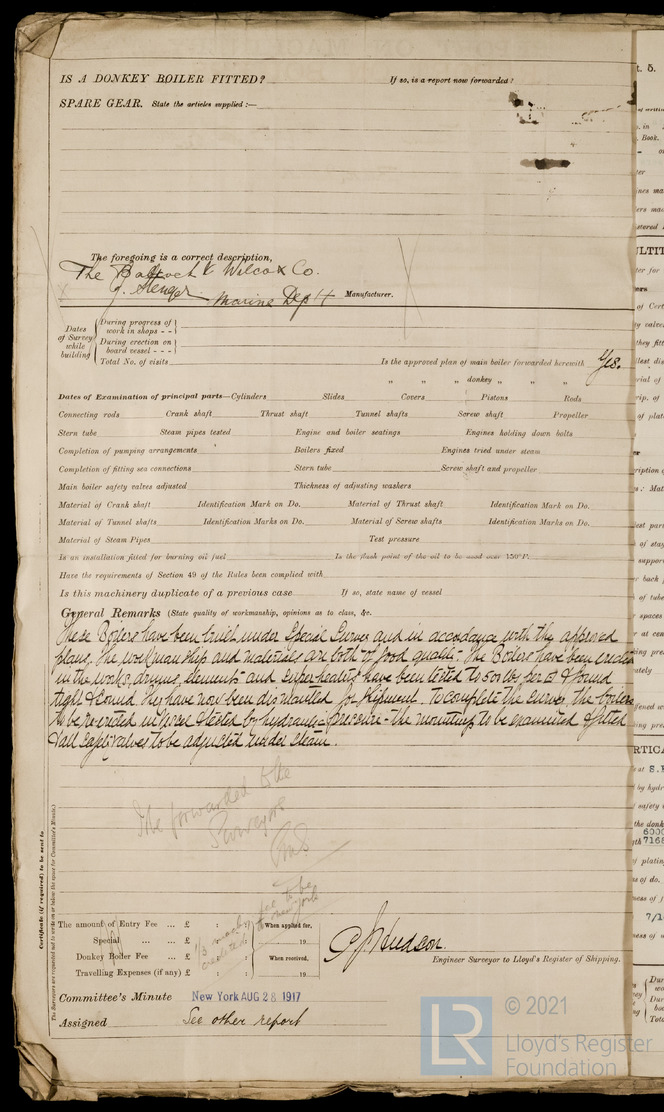 IS A DONKEY BOILER FITTED? If so, is a report now forwarded?
SPARE GEAR. State the articles supplied :—
The foregoing is a correct description,
The Babcock & Wilcox Co.
Marine Dept Manufacturer.
Dates of Survey while building
During progress of work in shops - -
During erection on board vessel - - -
Total No. of visits
Is the approved plan of main boiler forwarded herewith Yes.
" " " donkey " " "
Dates of Examination of principal parts—Cylinders Slides Covers Pistons Rods
Connecting rods Crank shaft Thrust shaft Tunnel shafts Screw shaft Propeller
Stern tube Steam pipes tested Engine and boiler seatings Engines holding down bolts
Completion of pumping arrangements Boilers fixed Engines tried under steam
Completion of fitting sea connections Stern tube Screw shaft and propeller
Main boiler safety valves adjusted Thickness of adjusting washers
Material of Crank shaft Identification Mark on Do. Material of Thrust shaft Identification Mark on Do.
Material of Tunnel shafts Identification Marks on Do. Material of Screw shafts Identification Marks on Do.
Material of Steam Pipes Test pressure
Is an installation fitted for burning oil fuel Is the flash point of the oil to be used over 150°F.
Have the requirements of Section 49 of the Rules been complied with
Is this machinery duplicate of a previous case If so, state name of vessel
General Remarks (State quality of workmanship, opinions as to class, &c.
These Boilers have been built under Special Survey and in accordance with the approved
plans. The workmanship and materials are both of good quality. The Boilers have been erected
in the works, drums, elements and superheaters have been tested to 500 lbs per □" & found
tight & sound. They have now been dismantled for shipment. To complete the survey the boilers
to be re-erected in vessel & tested by hydraulic pressure - the mountings to be examined & fitted
& all safety valves to be adjusted under steam.
forwarded to the
Surveyors
Certificate (if required) to be sent to
The Surveyors are requested not to write on or below the space for Committee's Minute.
The amount of Entry Fee ... £ : : When applied for,
Special ... ... £ : : 19
Donkey Boiler Fee ... £ : : When received,
Travelling Expenses (if any) £ : : 19
fee to be
New York
Hudson.
Engineer Surveyor to Lloyd's Register of Shipping.
Committee's Minute New York AUG 28 1917
Assigned See other report
LR © 2021
Lloyd's Register
Foundation